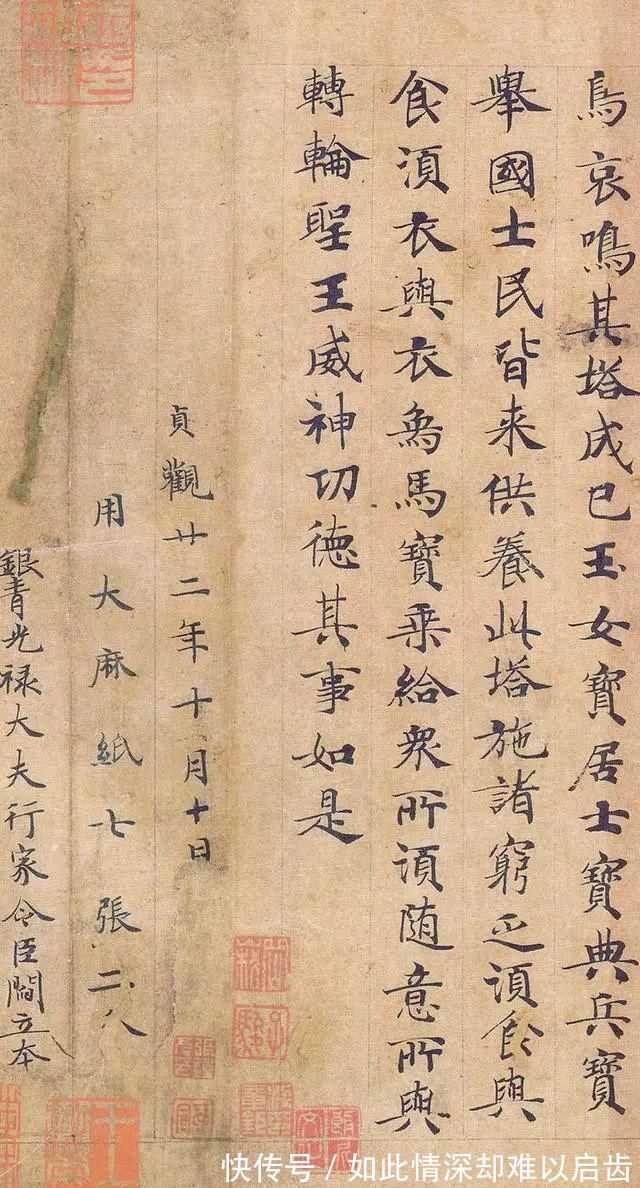 鳥哀鳴其塔成已玉女寶居士寶典兵寶
舉國士民皆来供養此塔施諸窮乏須食與
食須衣與衣烏馬寶乗給衆所須随意所與
轉輪聖王威神功德其事如是
貞觀廿二年十二月十日
用大麻紙七張二分
銀青光禄大夫行家令臣閻立本
快传号/如此情深却难以启齿